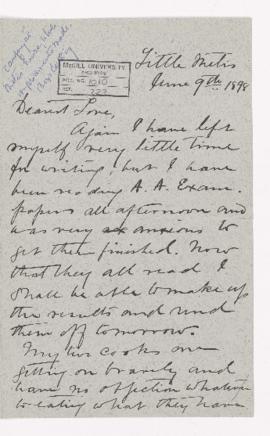 Little Metis
June 9th 1898
McGILL UNIVERSITY
ARCHIVES
ACC. NO. 1010
REF.
Dearest Love,
Again I have left
myself very little time
for writing, but I have
been reading A. A. Exam.
papers all afternoon and
was very anxious to
get them finished. Now
that they all read I
shall be able to make up
the results and send
them off tomorrow.
My two cooks are
getting on bravely and
have no objection whatever
to eating what they have